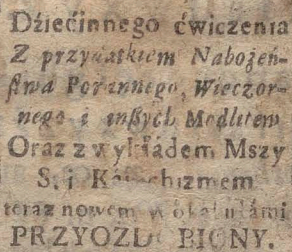 Dźiećinnego ćwiczenia
Z przydatkiem Nabożeń-
ſtwa Porannego, Wieczor-
nego i inßych Modlitew
Oraz z wykładem Mszy
S. i Katechizmem
teraz nowemi wokabułámi
PRZYOZDOBIONY.